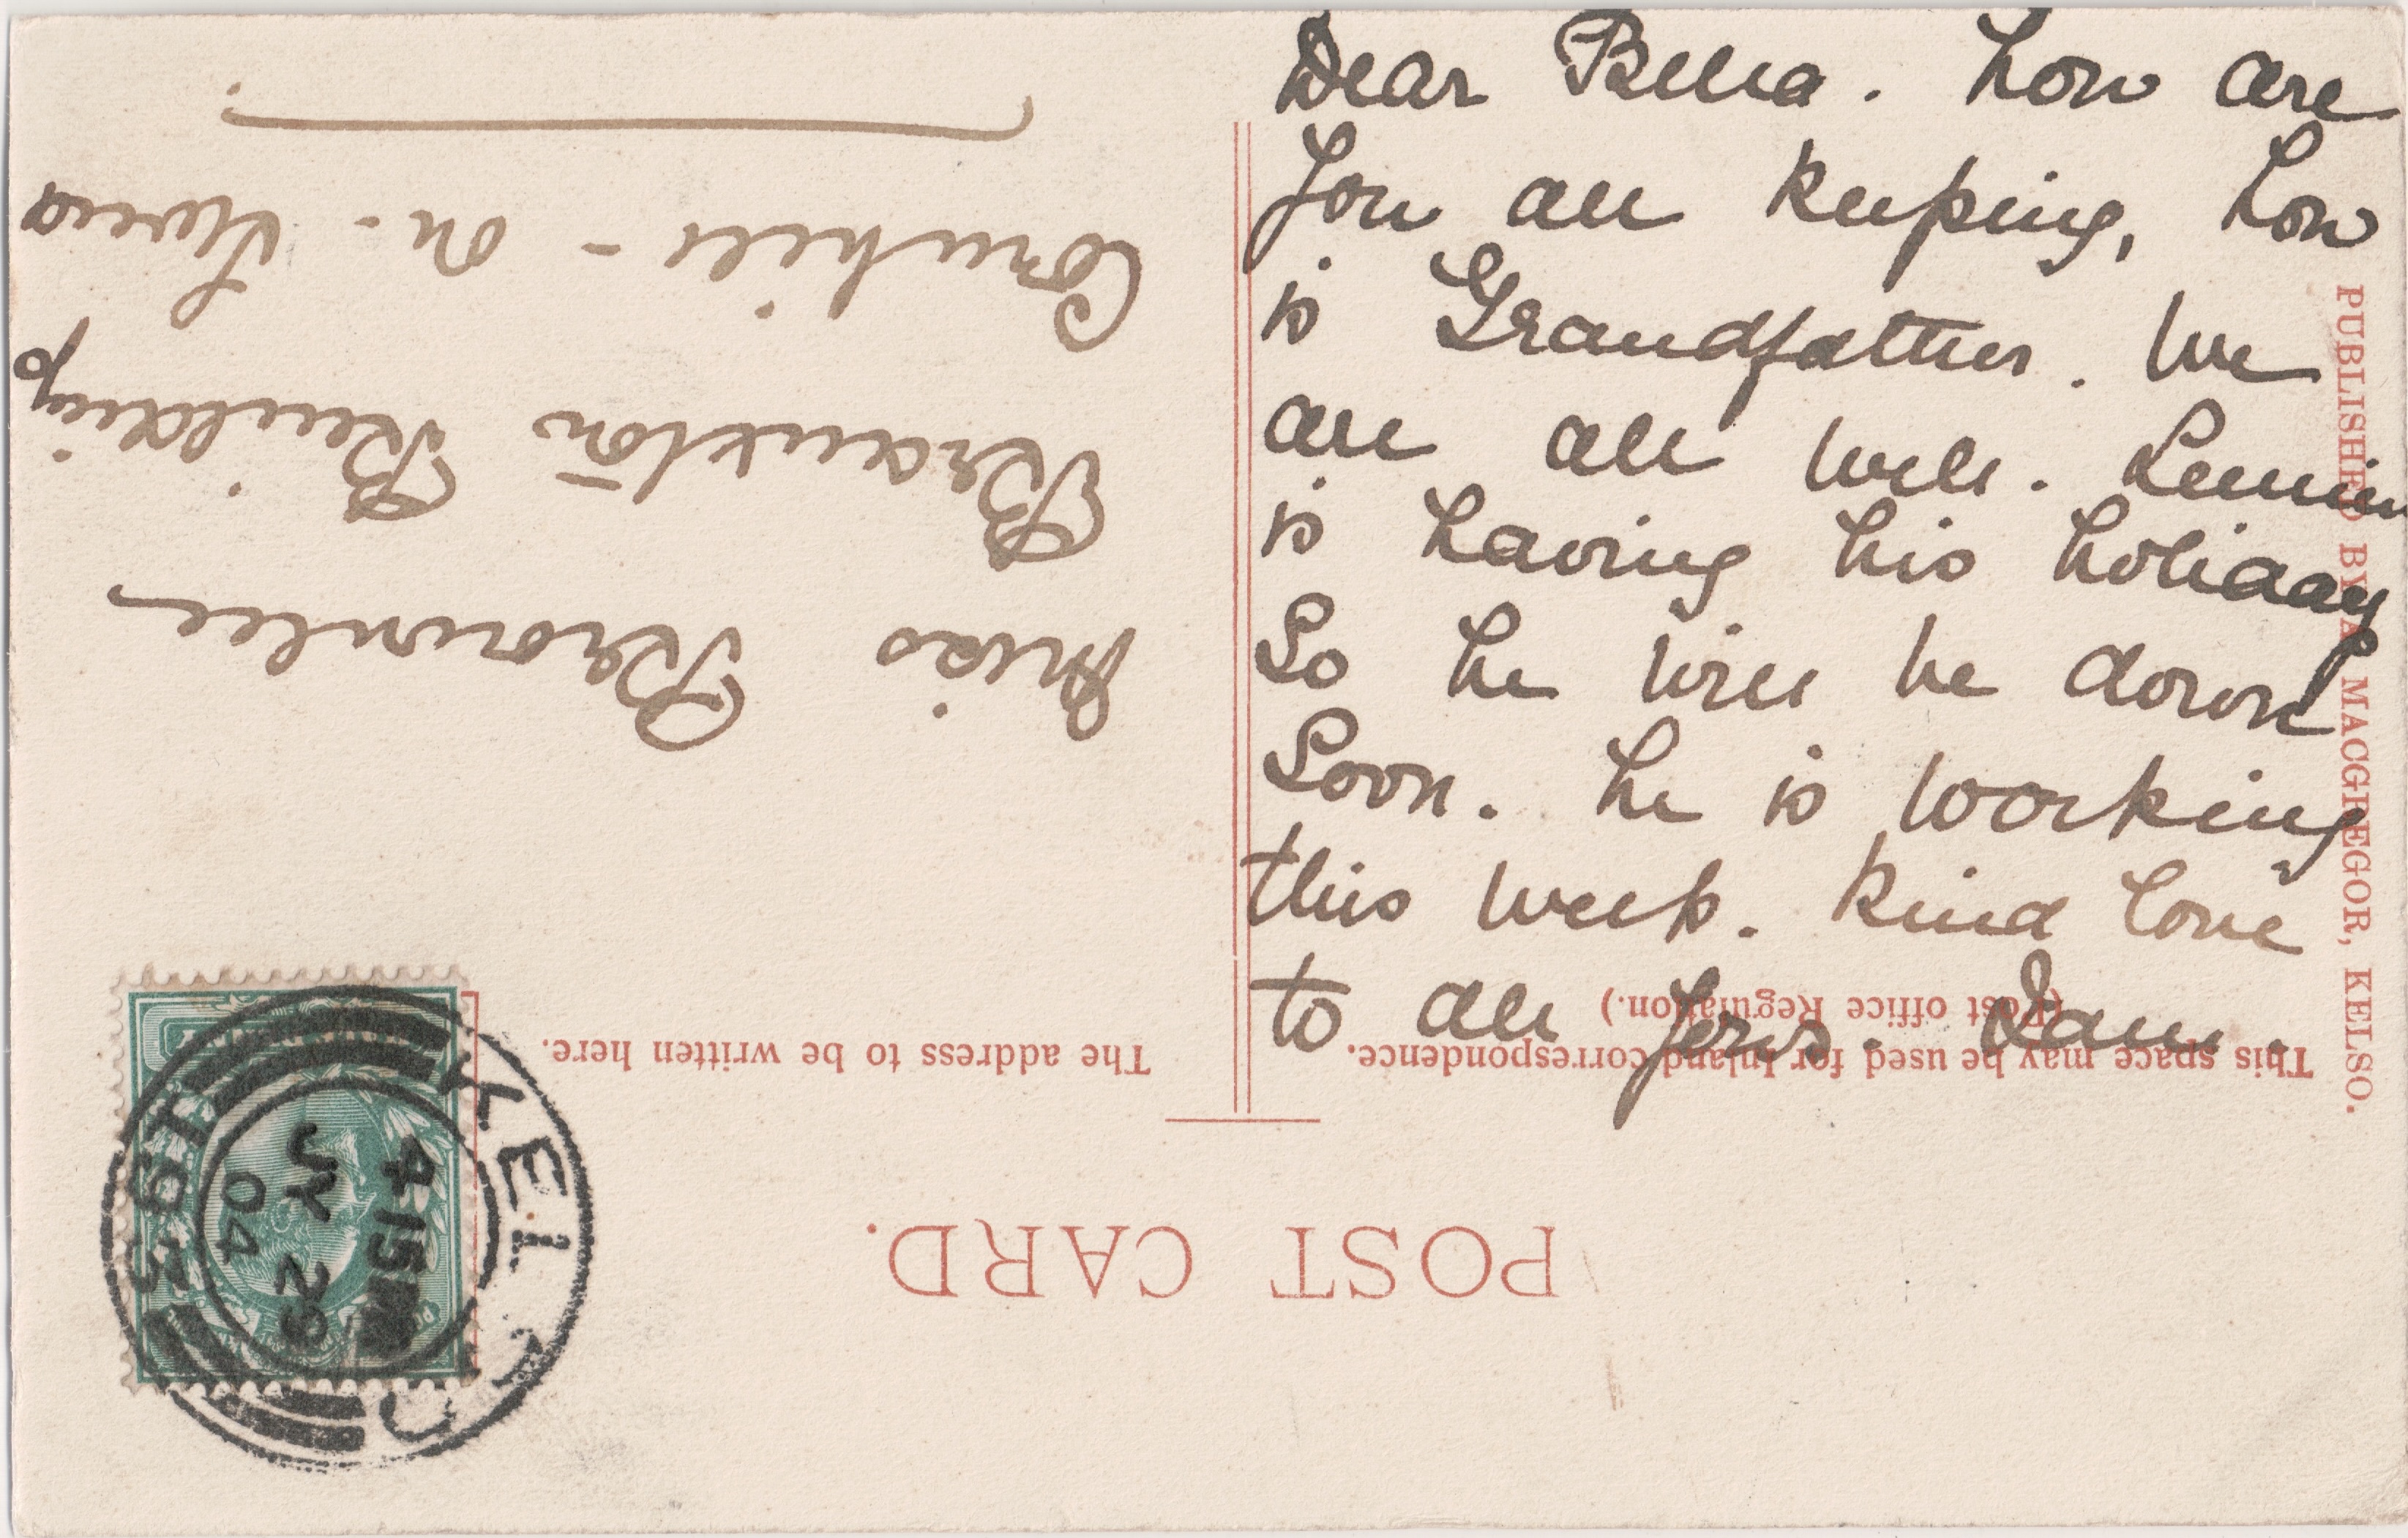 Dear Bella. how are
you all keeping, how
is Grandfather. We
are all well.
is having his holiday
So he will be down
Soon. he is working
this week. kind love
to all yours.
PUBLISHED BY A. MACGREGOR, KELSO.
POST CARD.
This space may be used for Inland correspondence.
(Post office Regulation.)
The address to be written here.
Miss Brownlee
Branxton Building
Cornhill - on - Tweed
KELSO
4 15PM
JY 29
04
193